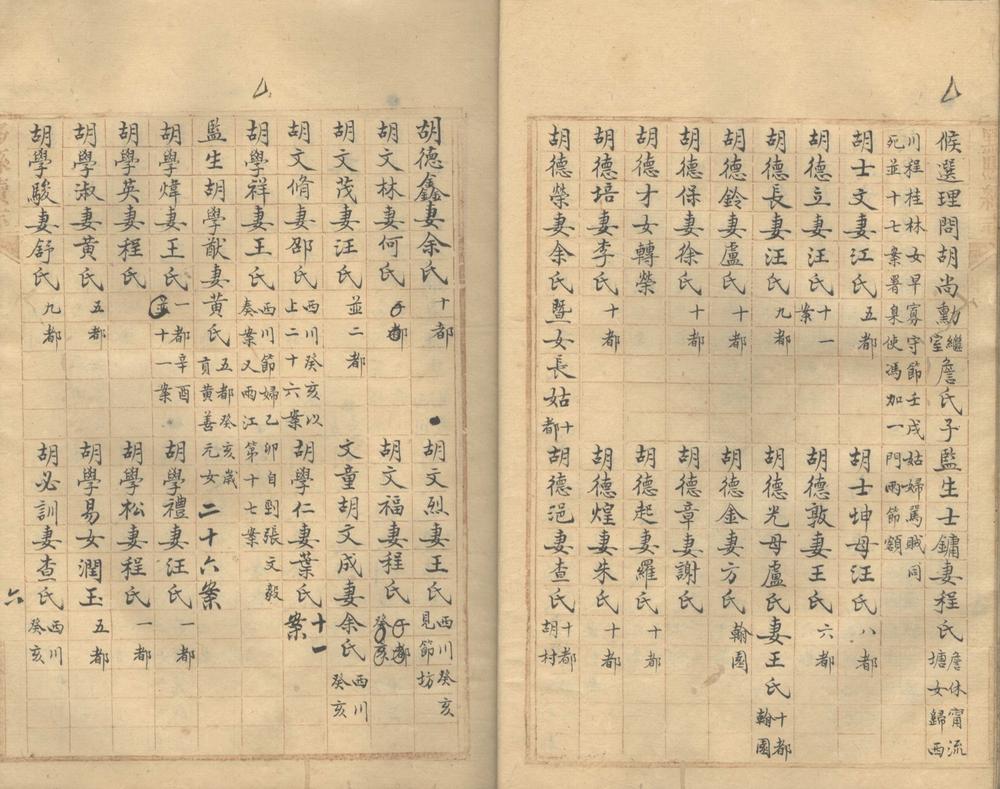 候選理問胡尚勳繼室詹氏子監生士鏞妻程氏詹休甯流塘女歸西
川程桂林女早寡守節壬戌姑婦罵賊同死並十七案署臬使馮加一門兩節額
胡士文妻江氏五都　胡士坤母汪氏八都
胡德立妻汪氏十一案　胡德敦妻王氏六都
胡德長妻汪氏九都　胡德光母盧氏妻王氏十都翰園
胡德鈴妻盧氏十都　胡德金妻方氏翰園
胡德保妻徐氏十都　胡德章妻謝氏
胡德才女轉榮　胡德起妻羅氏十都
胡德培妻李氏十都　胡德煌妻朱氏十都
胡德榮妻余氏暨女長姑十都　胡德浥妻查氏十都胡村
胡德鑫妻余氏十都　胡文烈妻王氏西川癸亥見節坊
胡文林妻何氏　胡文福妻程氏
胡文茂妻汪氏並二都　文童胡文成妻余氏西川癸亥
胡文脩妻邵氏西川癸亥以上二十六案　胡學仁妻葉氏十一案
胡學祥妻王氏西川節婦乙卯自剄張文毅奏案又兩江第十七案
監生胡學猷妻黃氏五都癸亥歲貢黃善元女二十六案
胡學煒妻王氏一都辛酉並十一案　胡學禮妻汪氏一都
胡學英妻程氏　胡學松妻程氏一都
胡學淑妻黃氏五都　胡學易女潤玉五都
胡學駿妻舒氏九都　胡必訓妻查氏西川癸亥
六